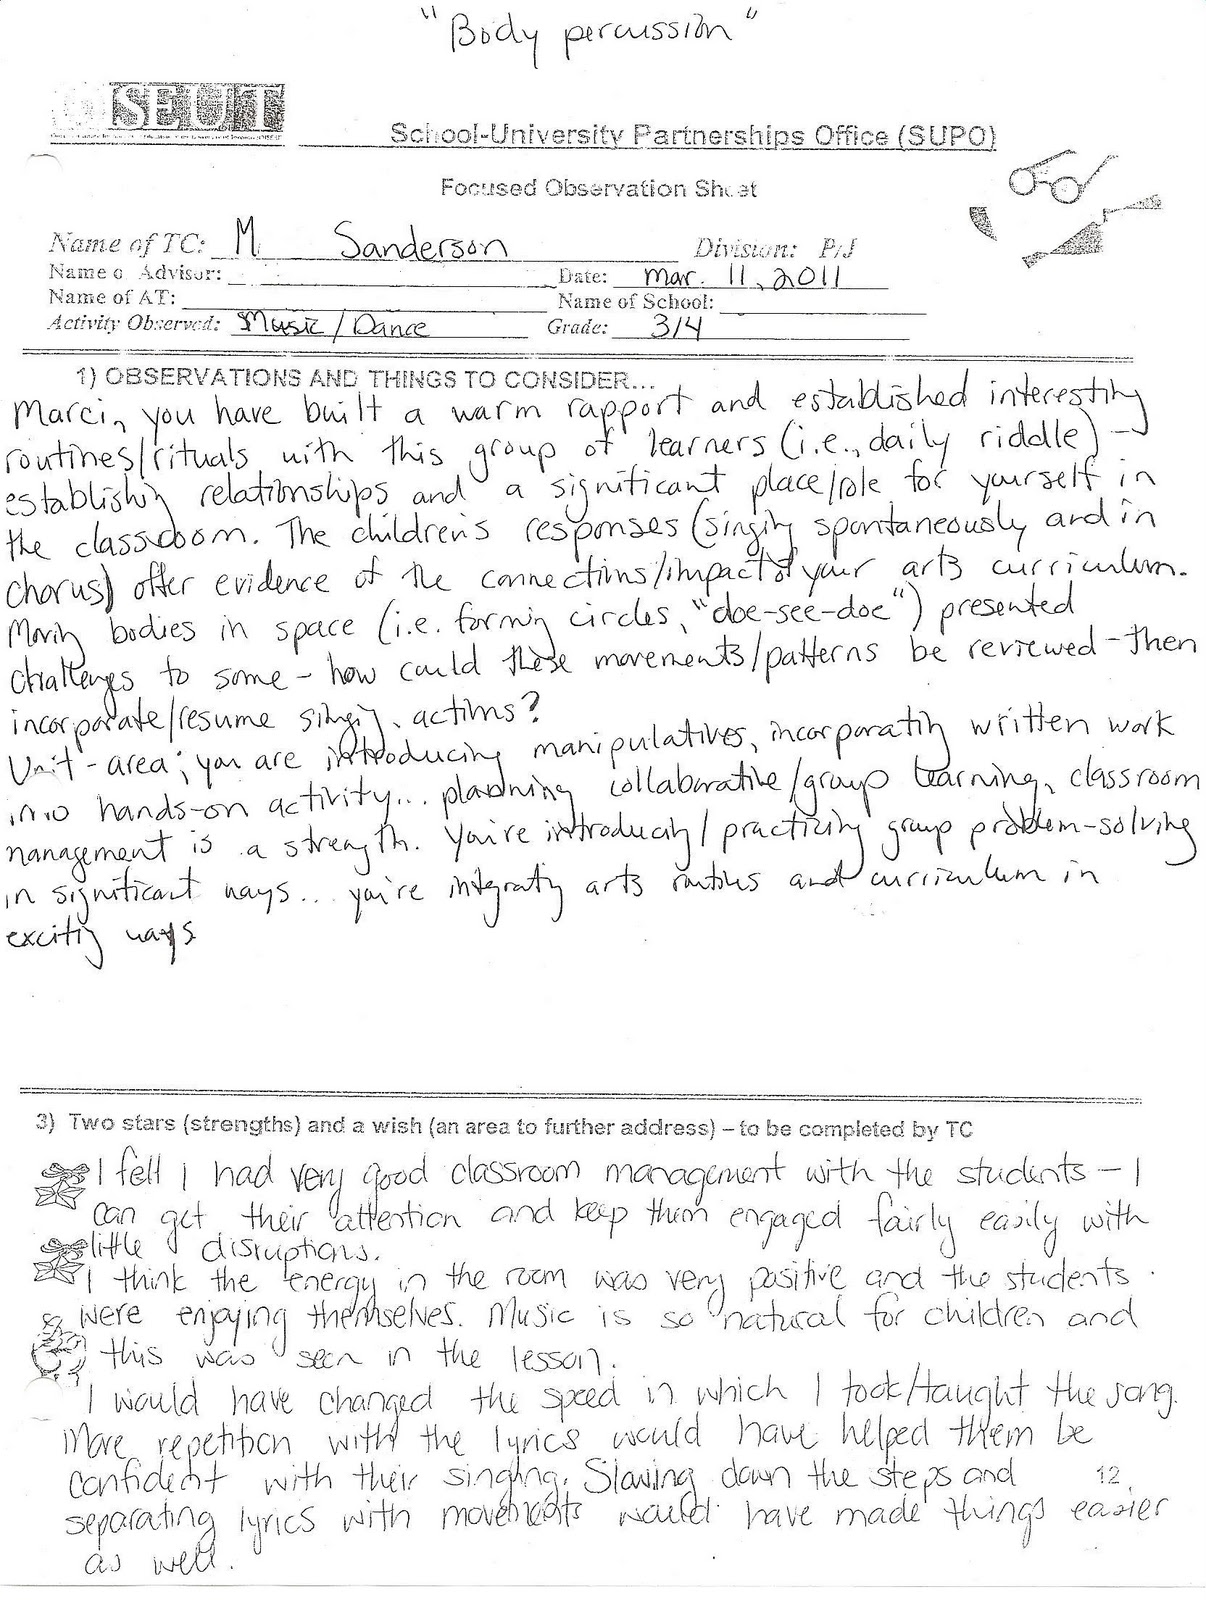 "Body percussion"
OISEUT
School-University Partnerships Office (SUPO)
Focused Observation Sheet
Name of TC: M Sanderson Division: P/J
Name o Advisor: Date: Mar. 11, 2011
Name of AT: Name of School:
Activity Observed: Music/Dance Grade: 3/4
1) OBSERVATIONS AND THINGS TO CONSIDER...
Marci, you have built a warm rapport and established interesting
routines/rituals with this group of learners (i.e., daily riddle) -
establishing relationships and a significant place/role for yourself in
the classroom. The children's responses (singing spontaneously and in
chorus) offer evidence of the connections/impact of your arts curriculum.
Moving bodies in space (i.e. forming circles, "doe-see-doe") presented
challenges to some - how could these movements/patterns be reviewed - then
incorporate/resume singing, actions?
Unit - area; you are introducing manipulatives, incorporating written work
into hands-on activity... planning collaborative/group learning, classroom
management is a strength. You're introducing/practicing group problem-solving
in significant ways... you're integrating arts routines and curriculum in
exciting ways
3) Two stars (strengths) and a wish (an area to further address) – to be completed by TC
I fell I had very good classroom management with the students - I
can get their attention and keep them engaged fairly easily with
little disruptions.
I think the energy in the room was very positive and the students
were enjoying themselves. Music is so natural for children and
this was seen in the lesson.
I would have changed the speed in which I took/taught the song.
More repetition with the lyrics would have helped them be
confident with their singing. Slowing down the steps and
12
separating lyrics with movements would have made things easier
as well.